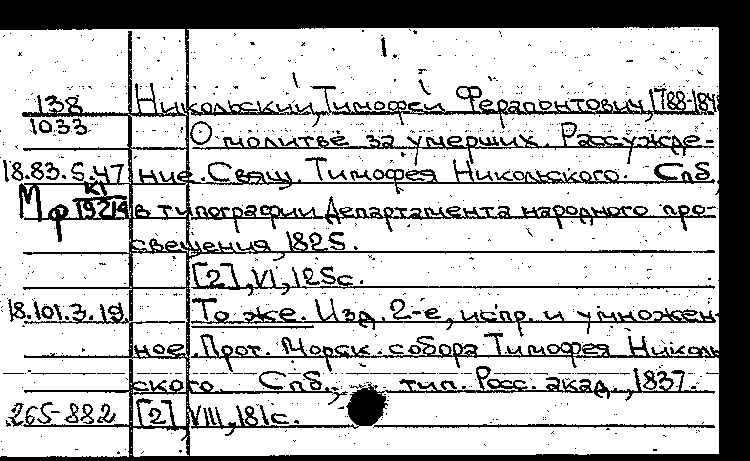 1.
138 Никольский, Тимофей Ферапонтович, 1788-1848
1033
О молитве за умерших. Рассужде-
18.83.5.47 ние. Свящ. Тимофея Никольского. Спб.,
Мф К1 19214 в типографии Департамента народного про-
свещения, 1825.
[2], VI, 125с.
18.101.3.19. То же. Изд. 2-е, испр. и умножен-
ное. Прот. Морск. собора Тимофея Николь
ского. Спб., тип. Росс. акад., 1837.
265-882 [2], VIII, 181с.